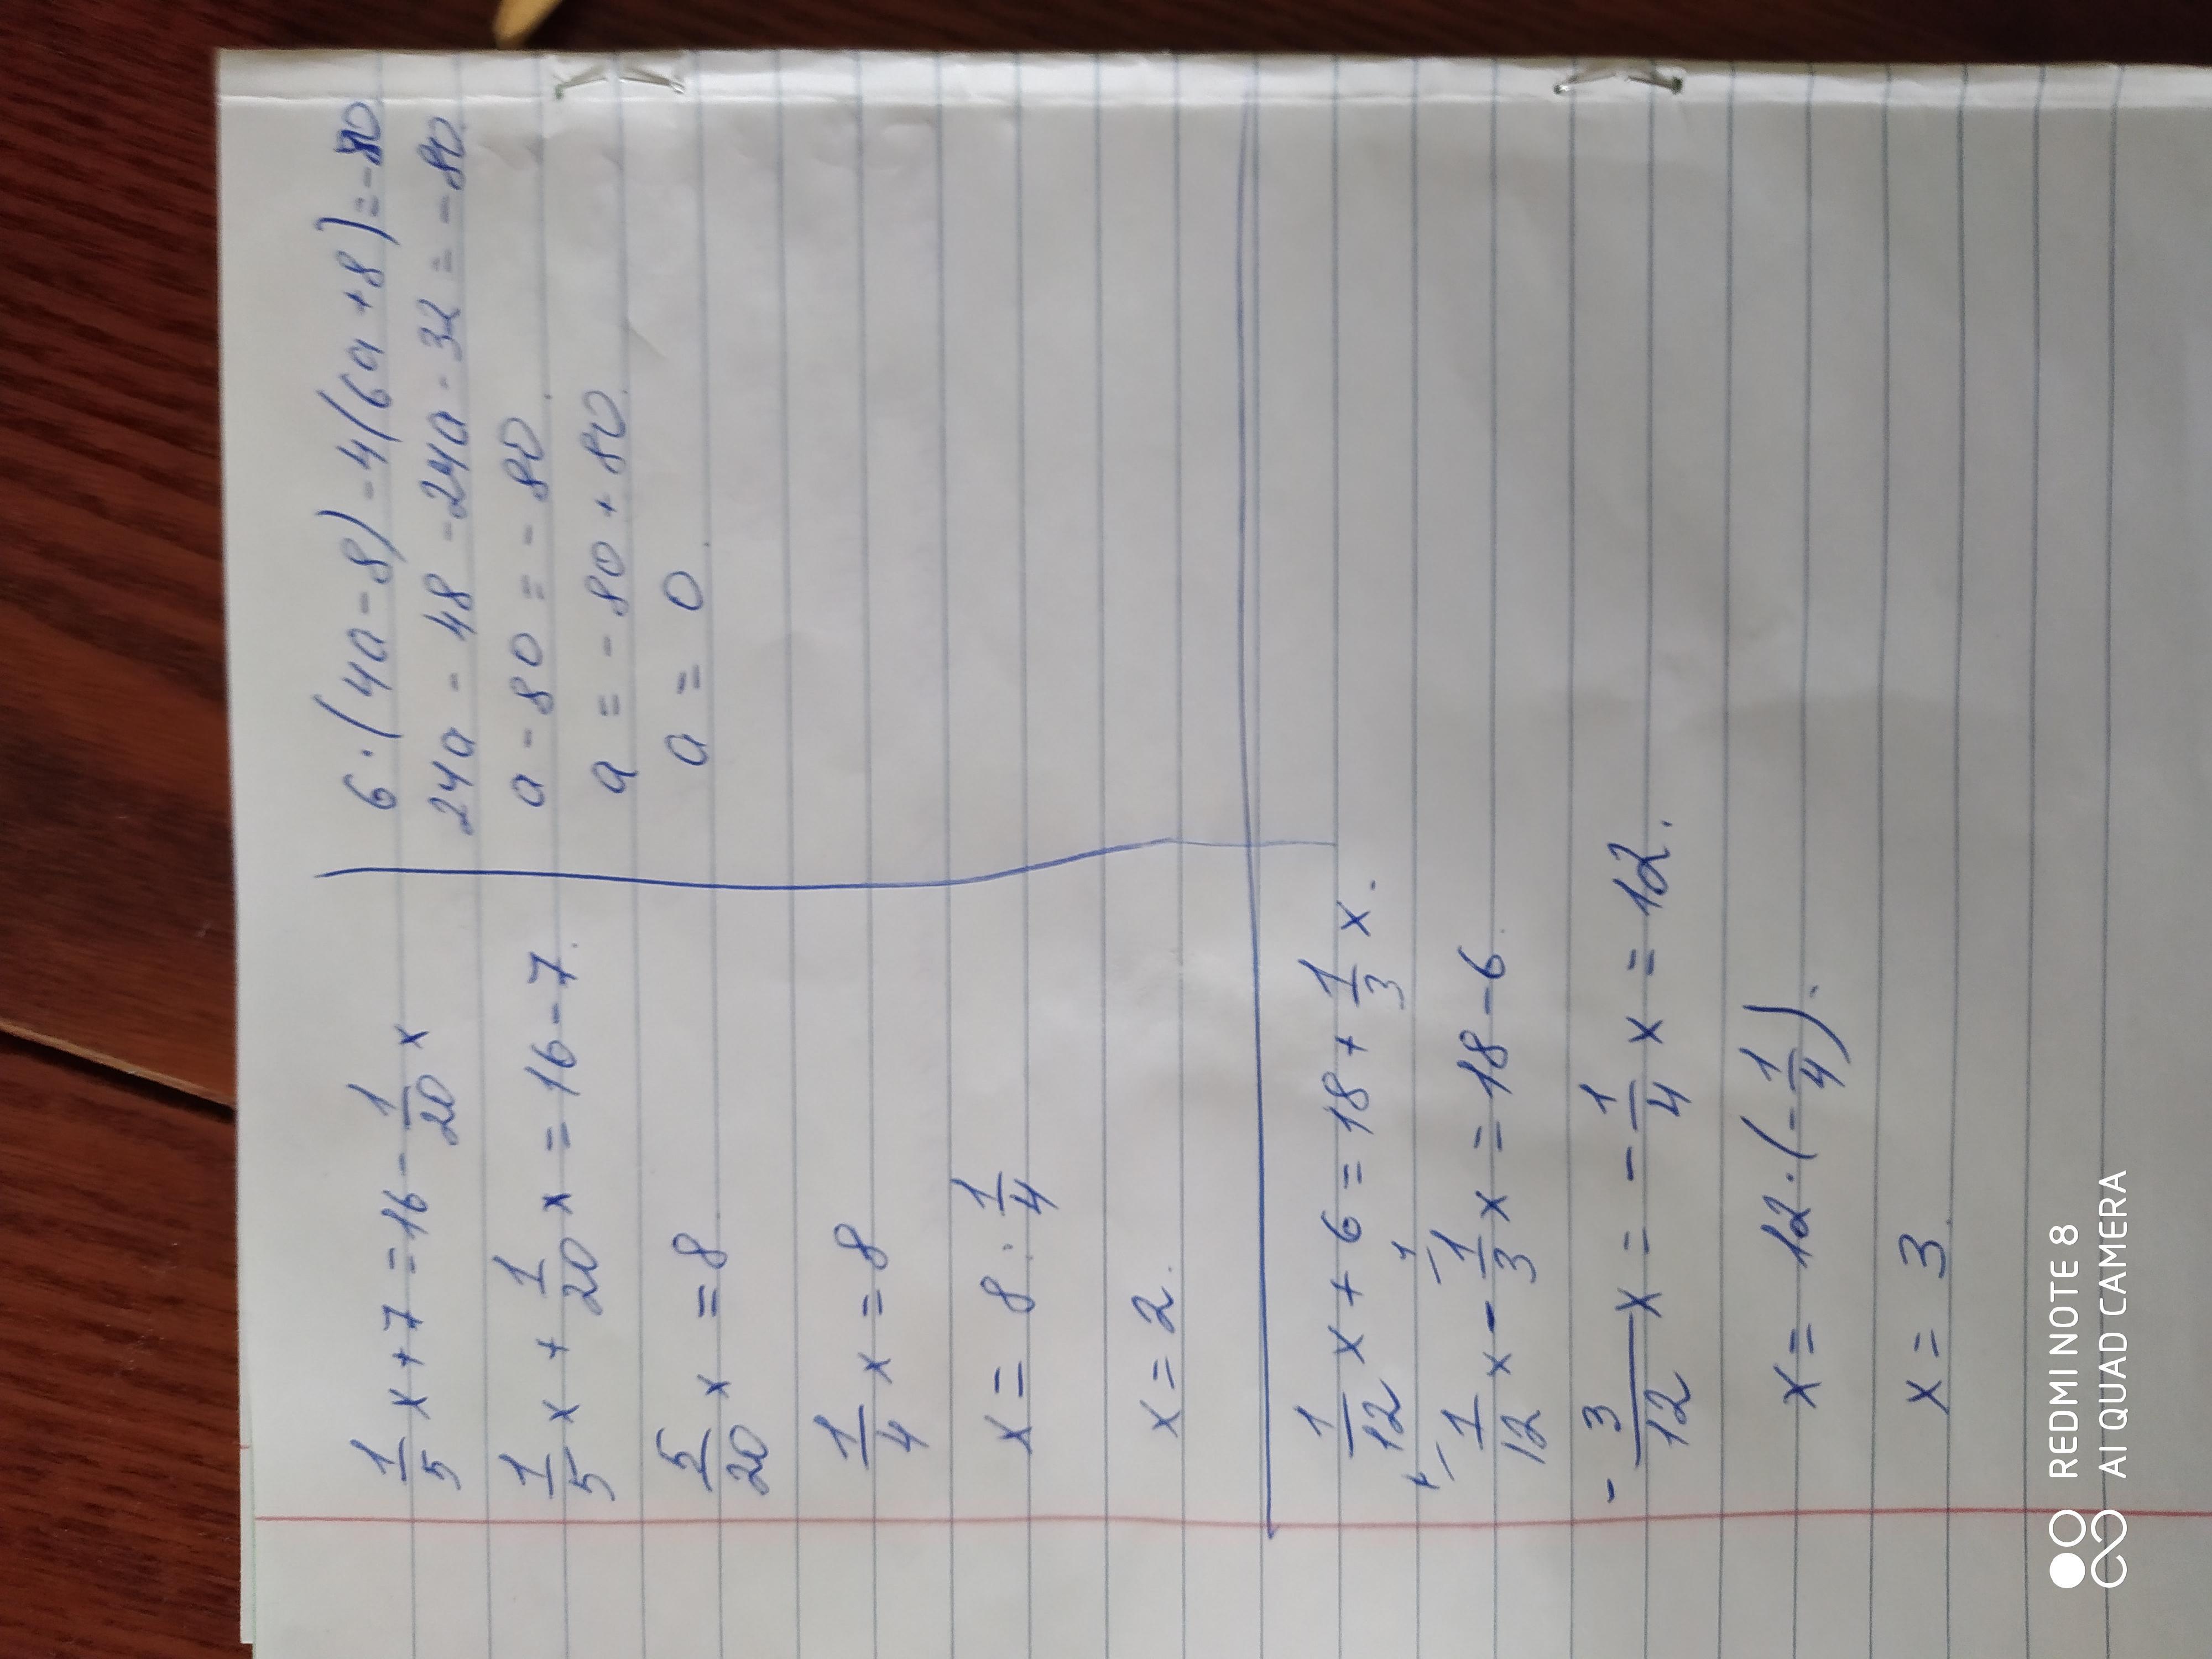 1/5 x + 7 = 16 - 1/20 x
1/5 x + 1/20 x = 16 - 7.
5/20 x = 8
1/4 x = 8
x = 8 : 1/4
x = 2.
6 · (4a - 8) - 4(6a + 8) = - 80
24a - 48 - 24a - 32 = - 80.
a - 80 = - 80.
a = - 80 + 80.
a = 0.
1/12 x + 6 = 18 + 1/3 x.
1/12 x - 1/3 x = 18 - 6.
- 3/12 x = - 1/4 x = 12.
x = 12 · (- 1/4).
x = 3.
REDMI NOTE 8
AI QUAD CAMERA